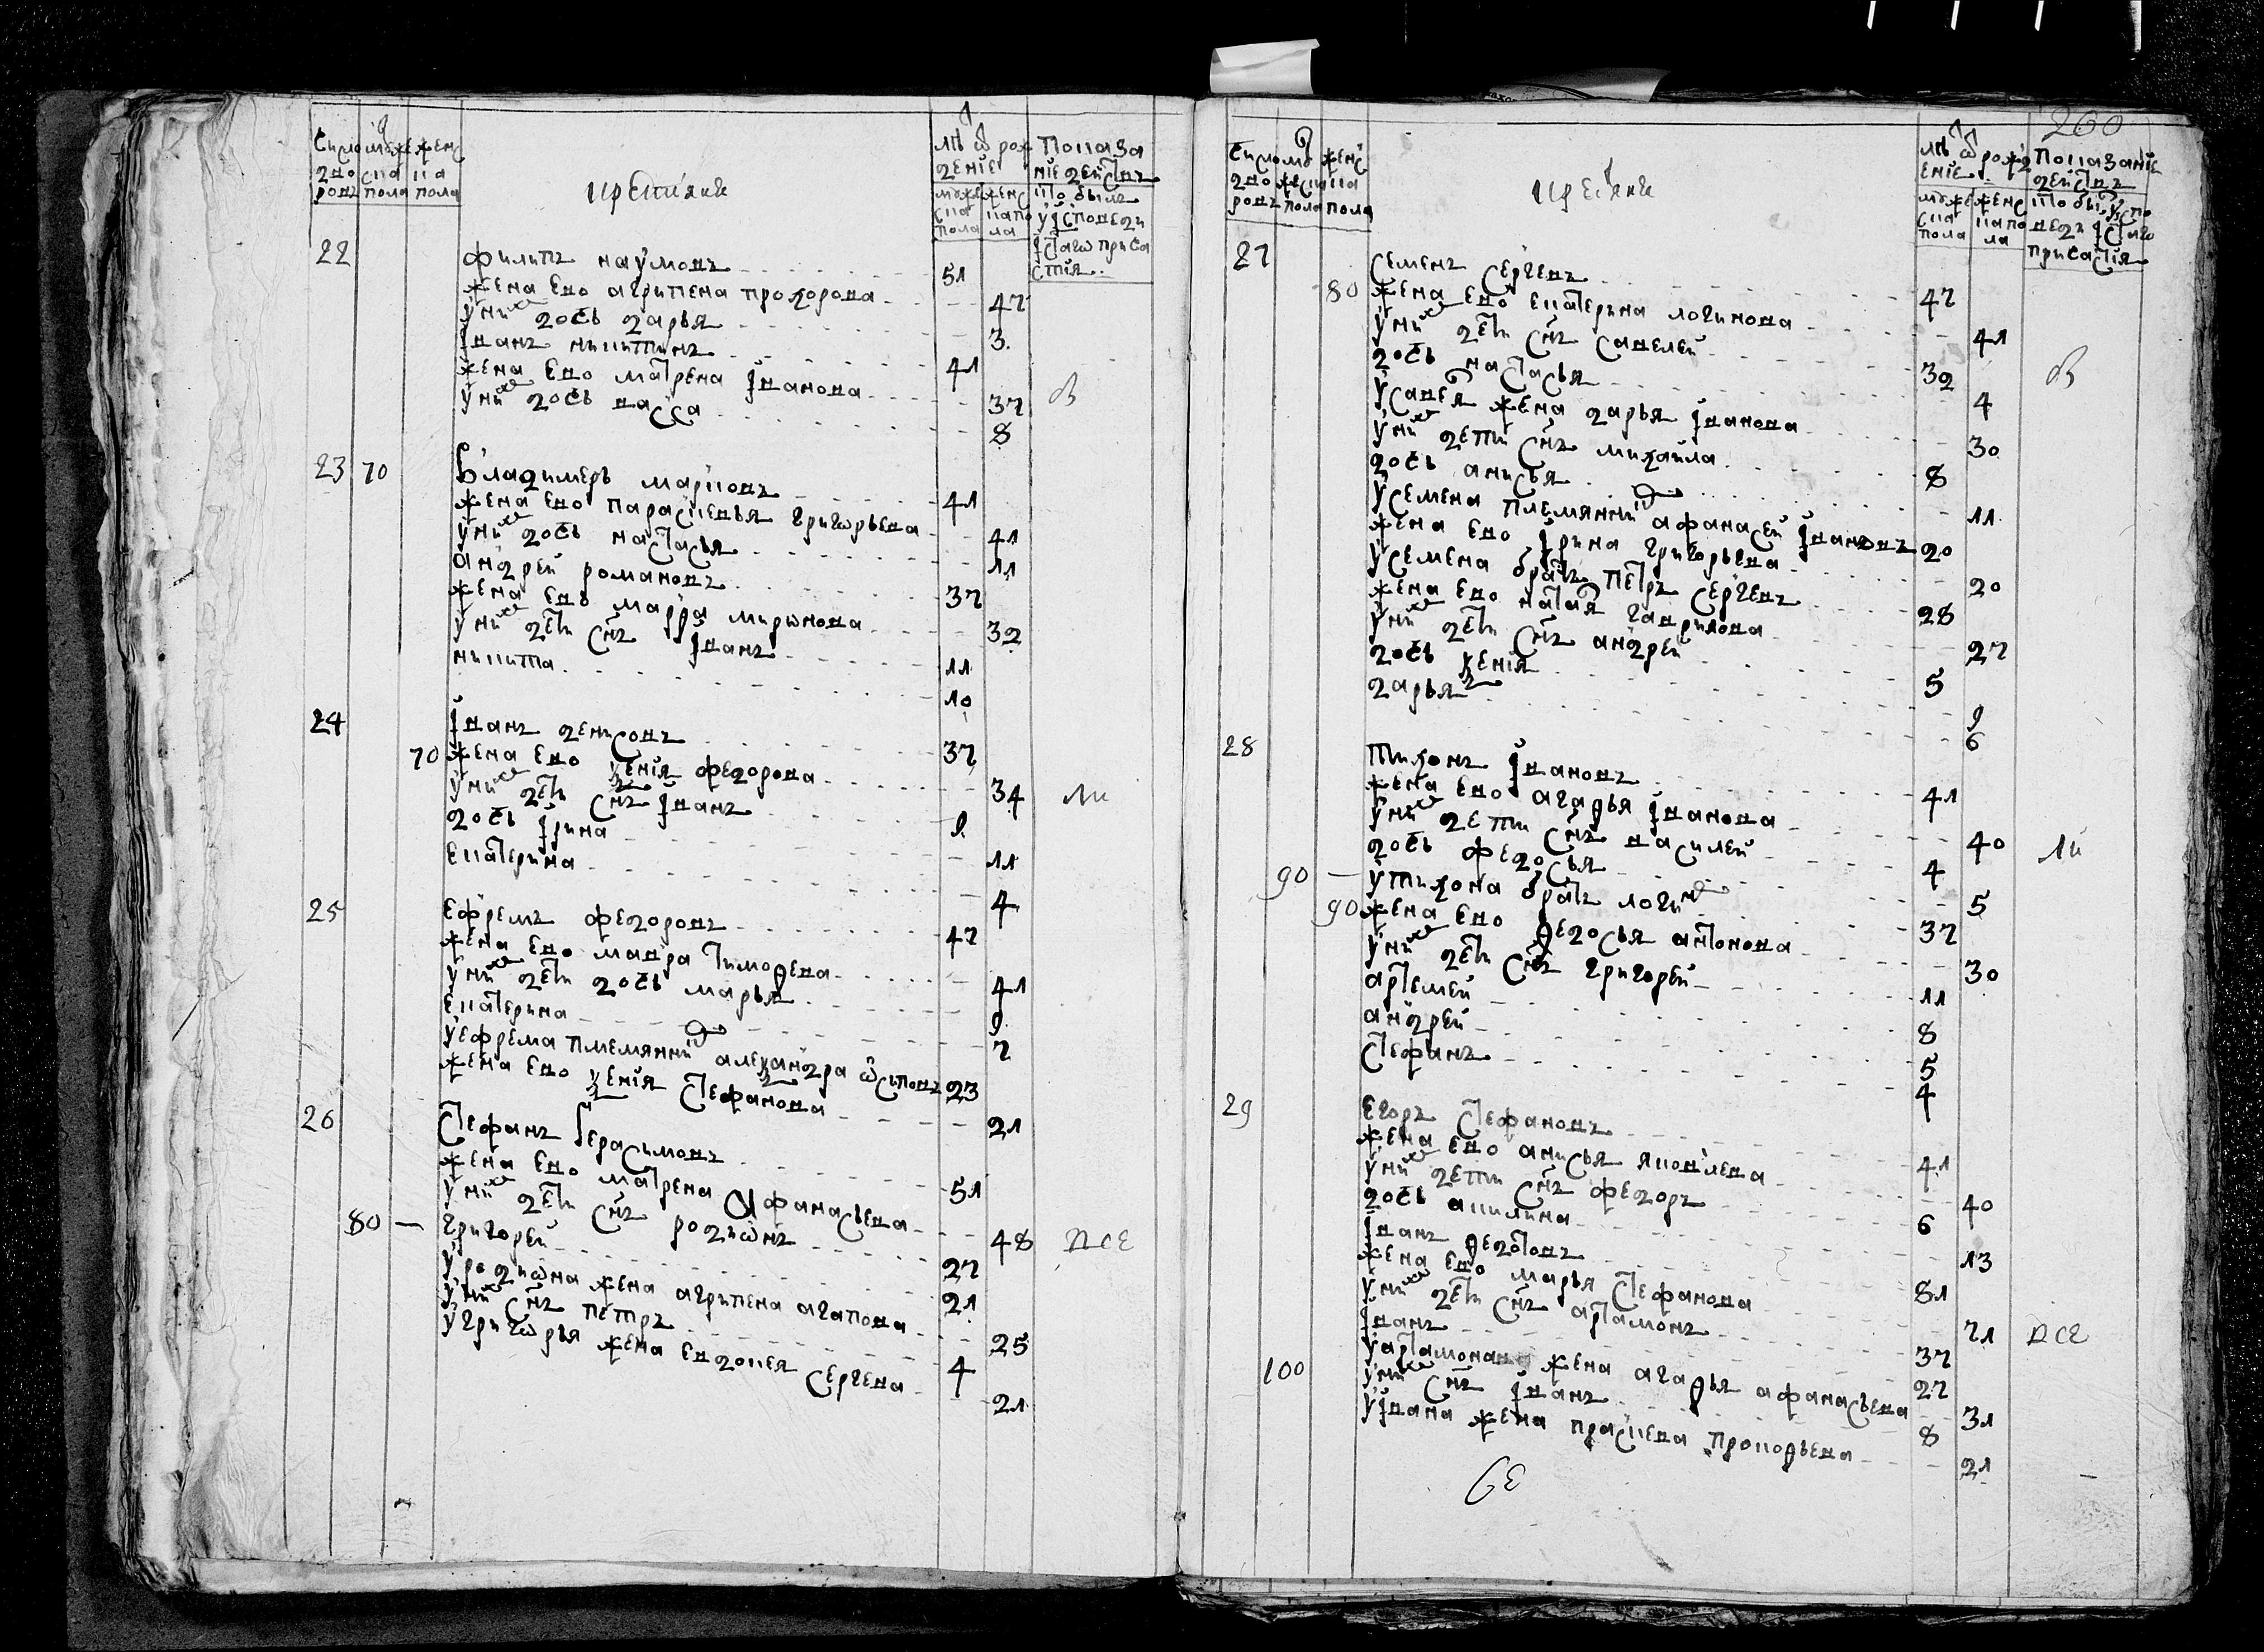 Число дво ровъ
мꙋже ска пола
женс ка пола
крестьяне
лѣ ѿ рож дение
мꙋже ска пола
женс ка по ла
Показа ние действъ
кто былъ ꙋ исповеди
и стагѡ прича стия
22 филипъ наумовъ 51
жена ево агрипена прохорова 47
у них дочь дарья 3
иванъ никитинъ 41
жена ево матрена иванова 37 в
у них дочь васса 8
23 70 владимеръ марковъ 41
жена ево парасковья григорьева 41
у них дочь настасья 11
андрей романовъ 37
жена ево марфа миронова 32
у них дети снъ иванъ 11
никита 10
24 иванъ денисовъ 37
70 жена ево ѯения федорова 34 ли
у них дети снъ иванъ 9
дочь ирина 11
екатерина 4
25 ефремъ федоровъ 47
жена ево мавра тимоѳева 41
у них дети дочь марья 9
екатерина 7
у ефрема племянник алеѯандра ѡсиповъ 23
жена ево ѯения стефанова 21
26 стефанъ герасимовъ 51
жена ево матрена афанасьева 48 все
у них дети снъ родиѡнъ 27
80 — григорей 21
у родиѡна жена агрипена агапова 25
у них снъ петръ 4
у григѡрья жена евдокея сергева 21
260
Число дво ровъ
мꙋ жеска пола
женс ка пола
крестьяне
лѣ ѿ рожд ение
мꙋже ска пола
женс ка по ла
Показание действъ
кто былъ ꙋ испо веди и стагѡ
причастия
27 семенъ сергевъ 47
80 жена ево екатерина логинова 41
у них дети снъ савелей 32 в
дочь настасья 4
у савелья жена дарья иванова 30
у них дети снъ михайла 8
дочь анисья 11
у семена племянник афанасей ивановъ 20
жена ево ирина григорьева 20
у семена братъ петръ сергевъ 28
жена ево наталья гаврилова 27
у них дети снъ андрей 5
дочь ѯения 9
дарья 6
28 тихонъ ивановъ 41
жена ево агаѳья иванова 40 ли
у них дети снъ василей 4
дочь федосья 5
90 — у тихона братъ логин 37
90 жена ево ѳедосья антонова 30
у них дети снъ григорей 11
артемей 8
андрей 5
стефанъ 4
29 егоръ стефановъ 41
жена ево анисья яковлева 40
у них дети снъ федоръ 6
дочь акилина 13
иванъ ѳедотовъ 81
жена ево марья стефанова 71 все
у них дети снъ артамонъ 37
иванъ 27
у артамона жена агаѳья афанасьева 31
100 у них снъ иванъ 8
у ивана жена праскева прокоѳьева 21